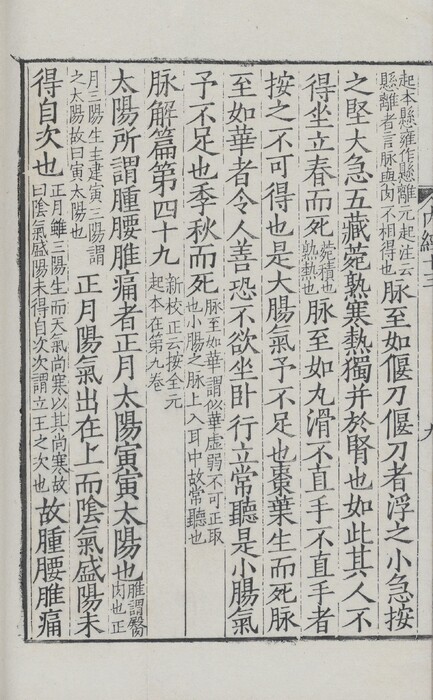 起本縣雍作懸離元起注云
懸離者言脉與肉不相得也
脉至如偃刀偃刀者浮之小急按
之堅大急五藏菀熟寒熱獨并於腎也如此其人不
得坐立春而死
菀積也
熟熱也
脉至如丸滑不直手不直手者
按之不可得也是大腸氣予不足也棗葉生而死脉
至如華者令人善恐不欲坐卧行立常聽是小腸氣
予不足也季秋而死
脉至如華謂似華虚弱不可正取
也小腸之脉上入耳中故常聽也
脉解篇第四十九
新校正云按全元
起本在第九卷
太陽所謂腫腰脽痛者正月太陽寅寅太陽也
脽謂臀
肉也正
月三陽生主建寅三陽謂
之太陽故曰寅太陽也
正月陽氣出在上而陰氣盛陽未
得自次也
正月雖三陽生而天氣尚寒以其尚寒故
曰陰氣盛陽未得自次次謂立王之次也
故腫腰脽痛
内經十三
九